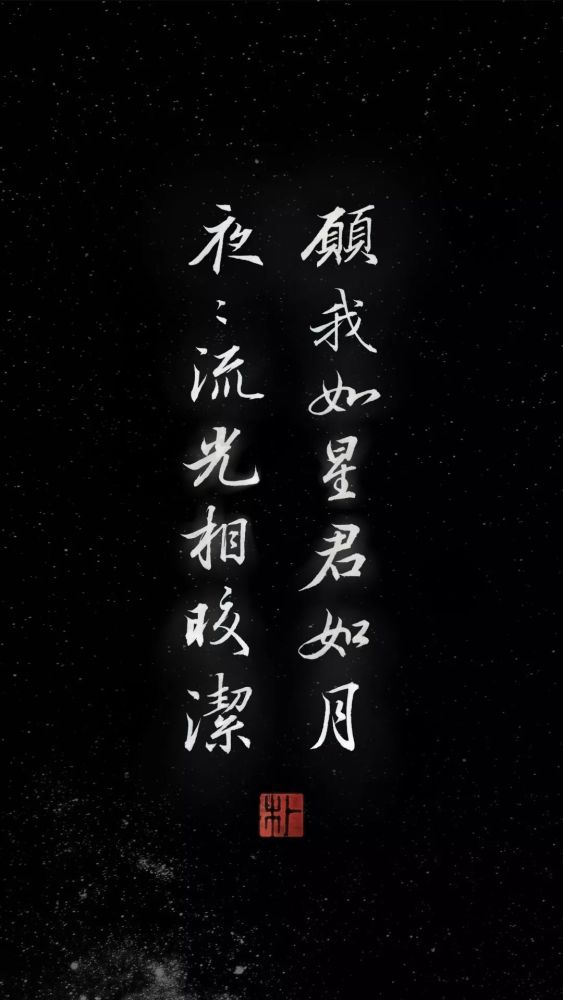 願我如星君如月
夜〻流光相皎潔
朴